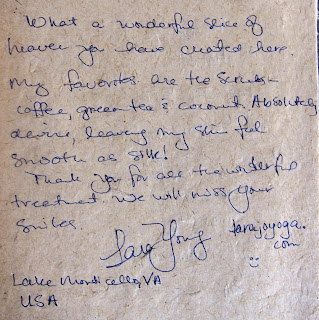 What a wonderful slice of
heaven you have created here.
My favorites are the scrubs -
coffee, green tea & coconut. Absolutely
devine, leaving my skin feel
smooth as silk!
Thank you for all the wonderful
treatment. We will miss your
smiles.
Tara Young tarajoyoga.
com
Lake Monticello, VA
USA